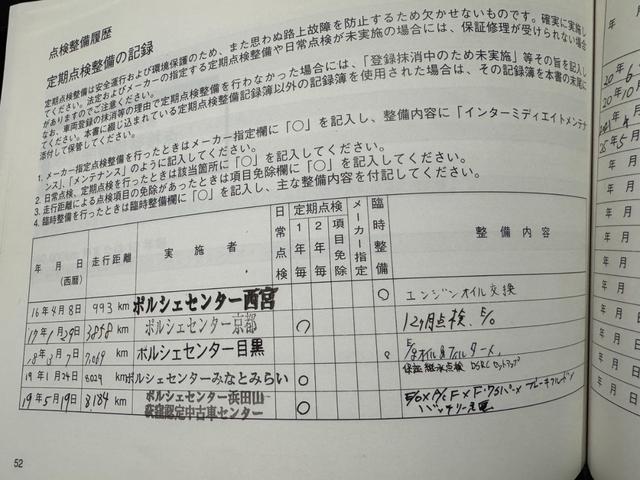 点検整備履歴
定期点検整備の記録
定期点検整備は安全運行および環境保護のため、また思わぬ路上故障を防止するため欠かせないものです。確実に実施し
てください。法定およびメーカーの指定する定期点検整備や日常点検が未実施の場合には、保証修理が受けられない場合
がありますのでご注意ください。
なお、車両登録の抹消等の理由で定期点検整備を行わなかった場合には、「登録抹消中のため未実施」等その旨を記入し
てください。本書に綴じ込まれている定期点検整備記録簿以外の記録簿を使用された場合は、その記録簿を本書の末尾に
添付して保管してください。
1. メーカー指定点検整備を行ったときはメーカー指定欄に「○」を記入し、整備内容に「インターミディエイトメンテナ
ンス」、「メンテナンス」のように記入してください。
2. 日常点検、定期点検を行ったときは該当箇所に「○」を記入してください。
3. 走行距離による点検項目の免除があったときは項目免除欄に「○」を記入してください。
4. 臨時整備を行ったときは臨時整備欄に「○」を記入し、主な整備内容を付記してください。
年 月 日
(西暦)
走行距離
実施者
日常点検
定期点検
1年毎
2年毎
項目免除
メーカー指定
臨時整備
整備内容
16年4月8日 993 km ポルシェセンター西宮 ○ エンジンオイル交換
17年1月29日 3858 km ポルシェセンター京都 ○ 12ヶ月点検、E/O
18年3月7日 7,019 km ポルシェセンター目黒 ○ E/gオイル&フィルター
保証継承点検 DSRCセットアップ
19年1月24日 8029 km ポルシェセンターみなとみらい ○
19年5月19日 8184 km ポルシェセンター浜田山 ○ E/O×A/C F×F
荻窪認定中古車センター バッテリー充電
52
20年1
20年6
20年10